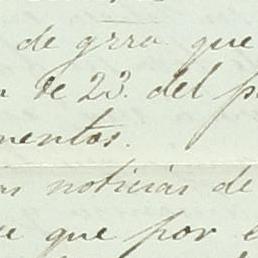 de grra que
de 23. del
mentos.
noticias de
que por e